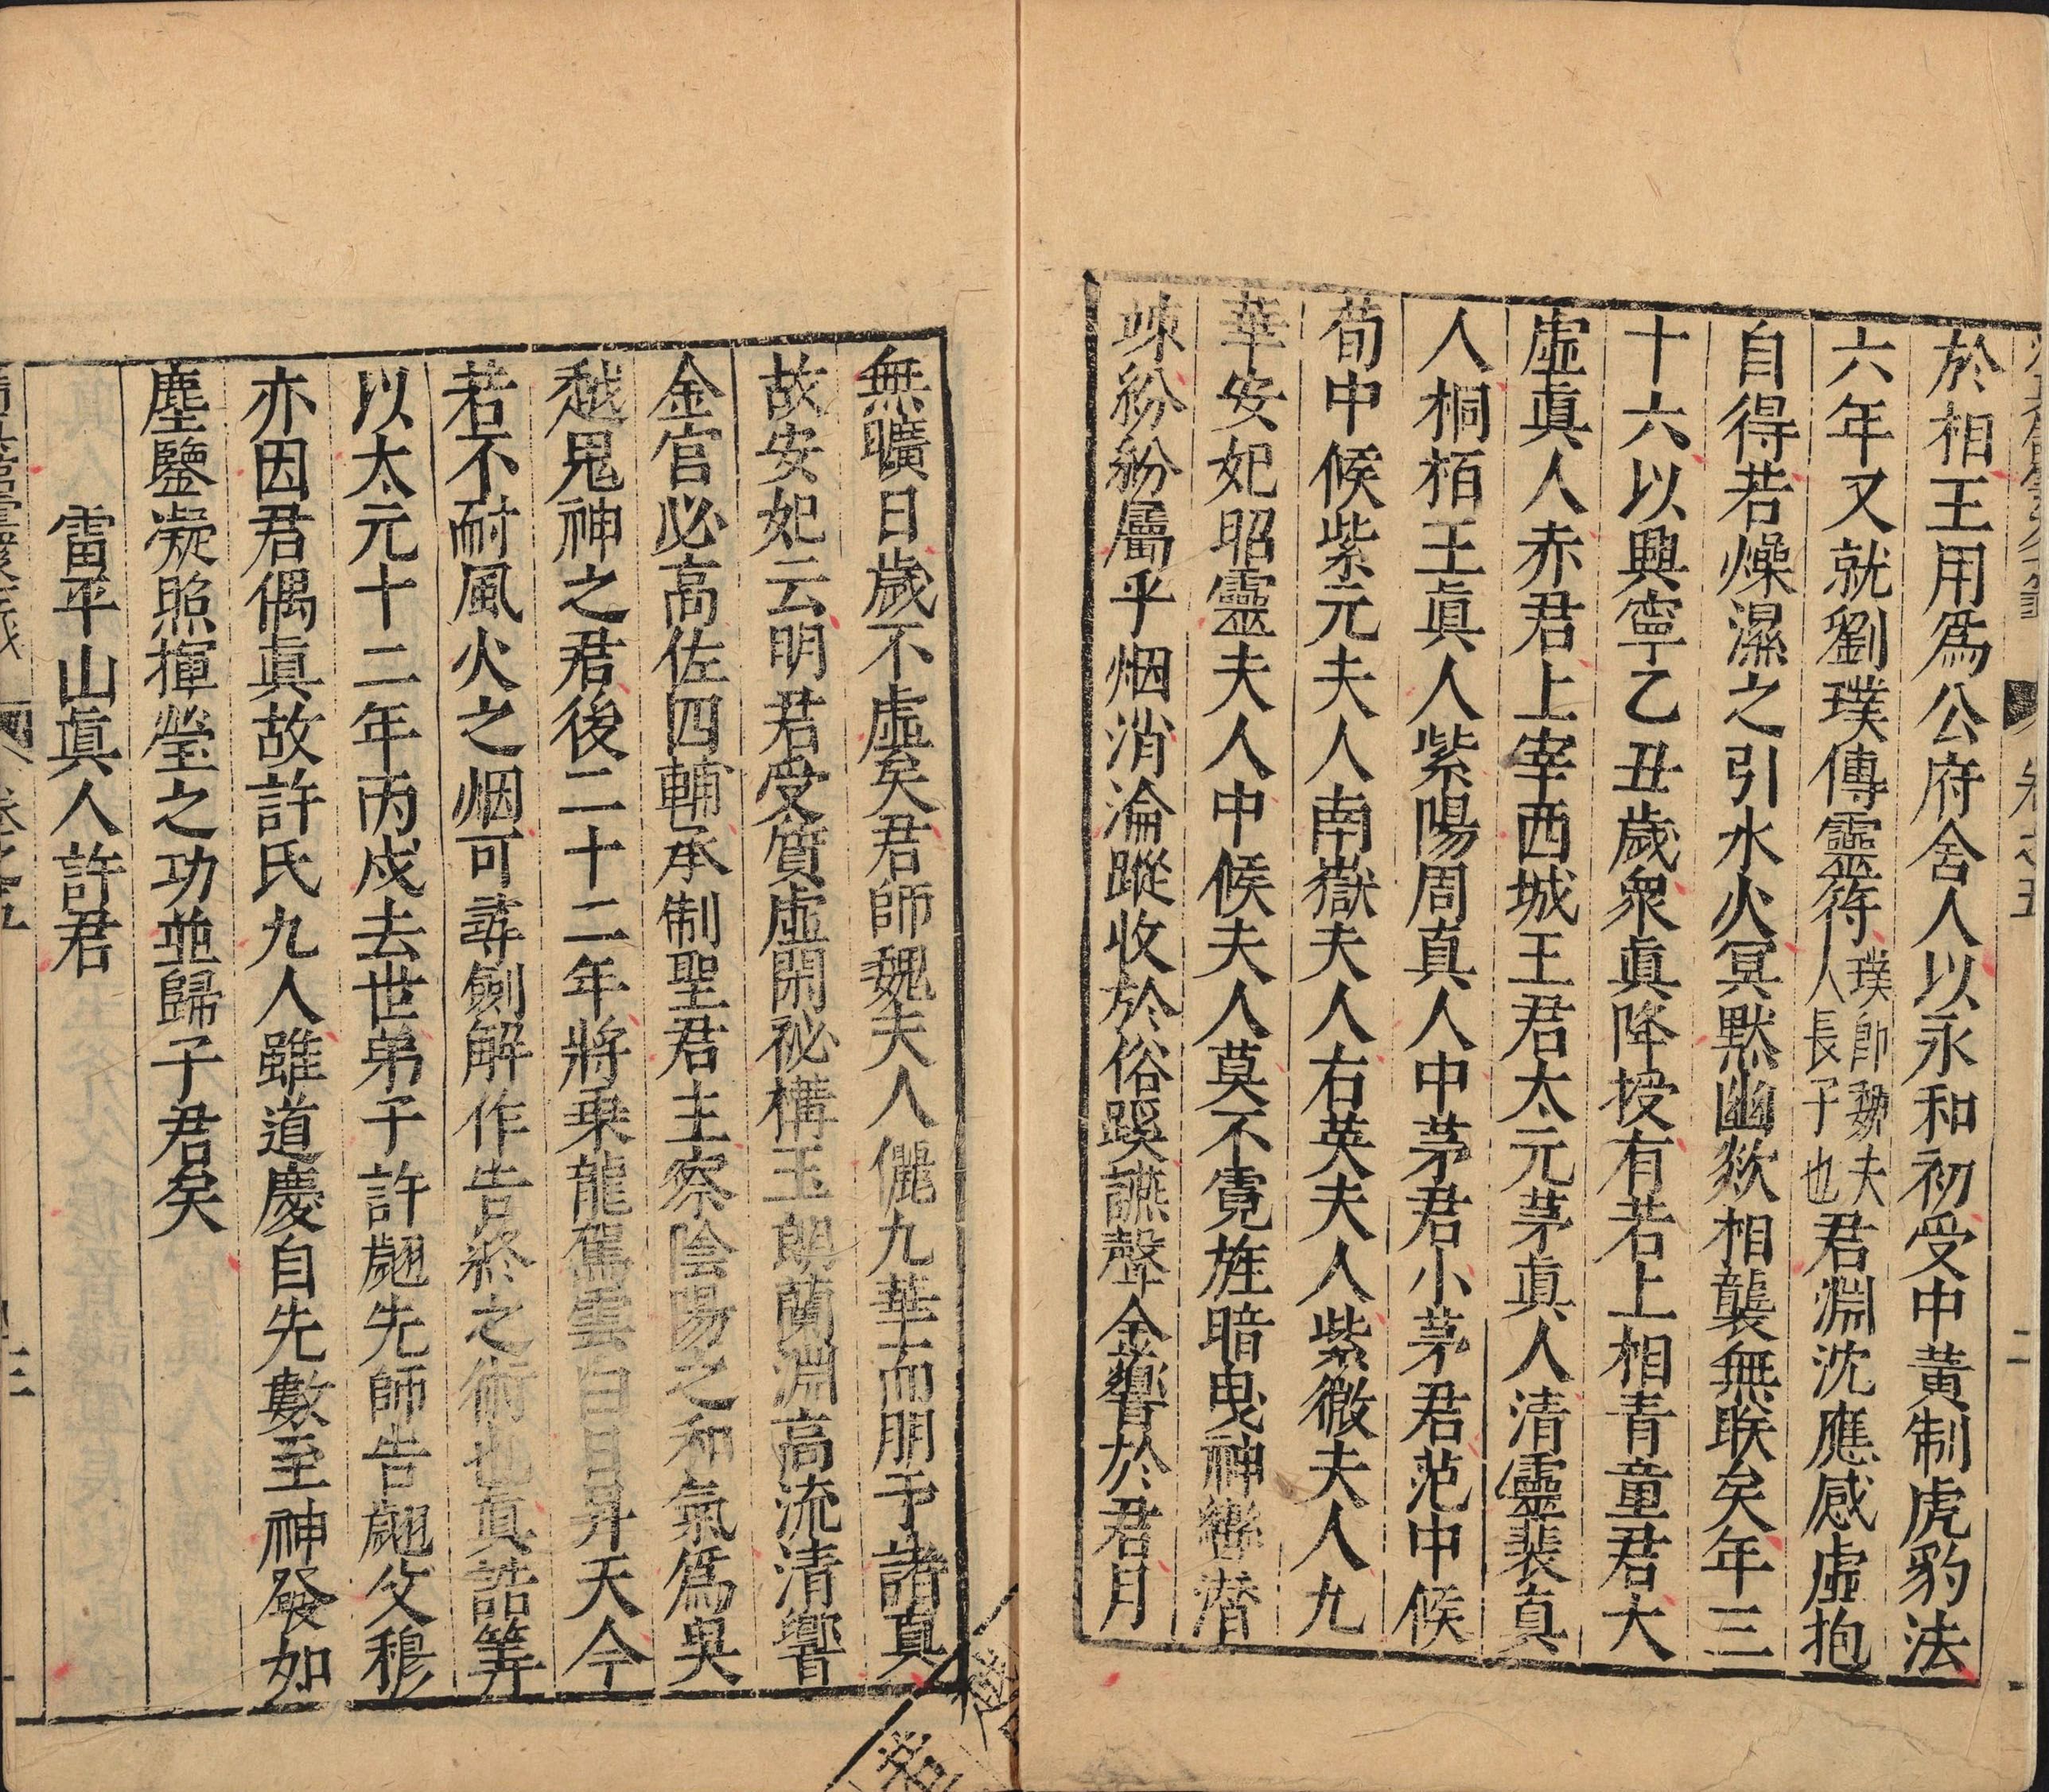 於相王用爲公府舍人以永和初受中黃制虎豹法
六年又就劉璞傳靈符璞師魏夫人長子也君淵沈應感虛抱
自得若燥濕之引水火冥默幽欻相襲無眹矣年三
十六以興寧乙丑歲衆眞降授有若上相青童君大
虛眞人赤君上宰西城王君太元茅眞人清靈裴真
人桐栢王眞人紫陽周真人中茅君小茅君范中候
荀中候紫元夫人南嶽夫人右英夫人紫微夫人九
華安妃昭靈夫人中候夫人莫不霓旌暗曳神轡潛
竦紛紛屬乎烟消淪蹤收於俗蹊讌聲金響於君月
無曠日歲不虛矣君師魏夫人儷九華而朋于諸真
故安妃云明君受質虛閑祕構玉朗蘭淵高流清響
金官必高佐四輔承制聖君主察陰陽之和氣爲吳
越鬼神之君後二十二年將乗龍駕雲白日昇天今
若不耐風火之烟可尋劍解作告終之術也眞誥筭
以太元十二年丙戍去世弟子許翽先師告翽父穆
亦因君偶眞故許氏九人雖道慶自先數至神發如
塵鑒凝照揮瑩之功並歸子君矣
雷平山眞人許君
卷之五
三